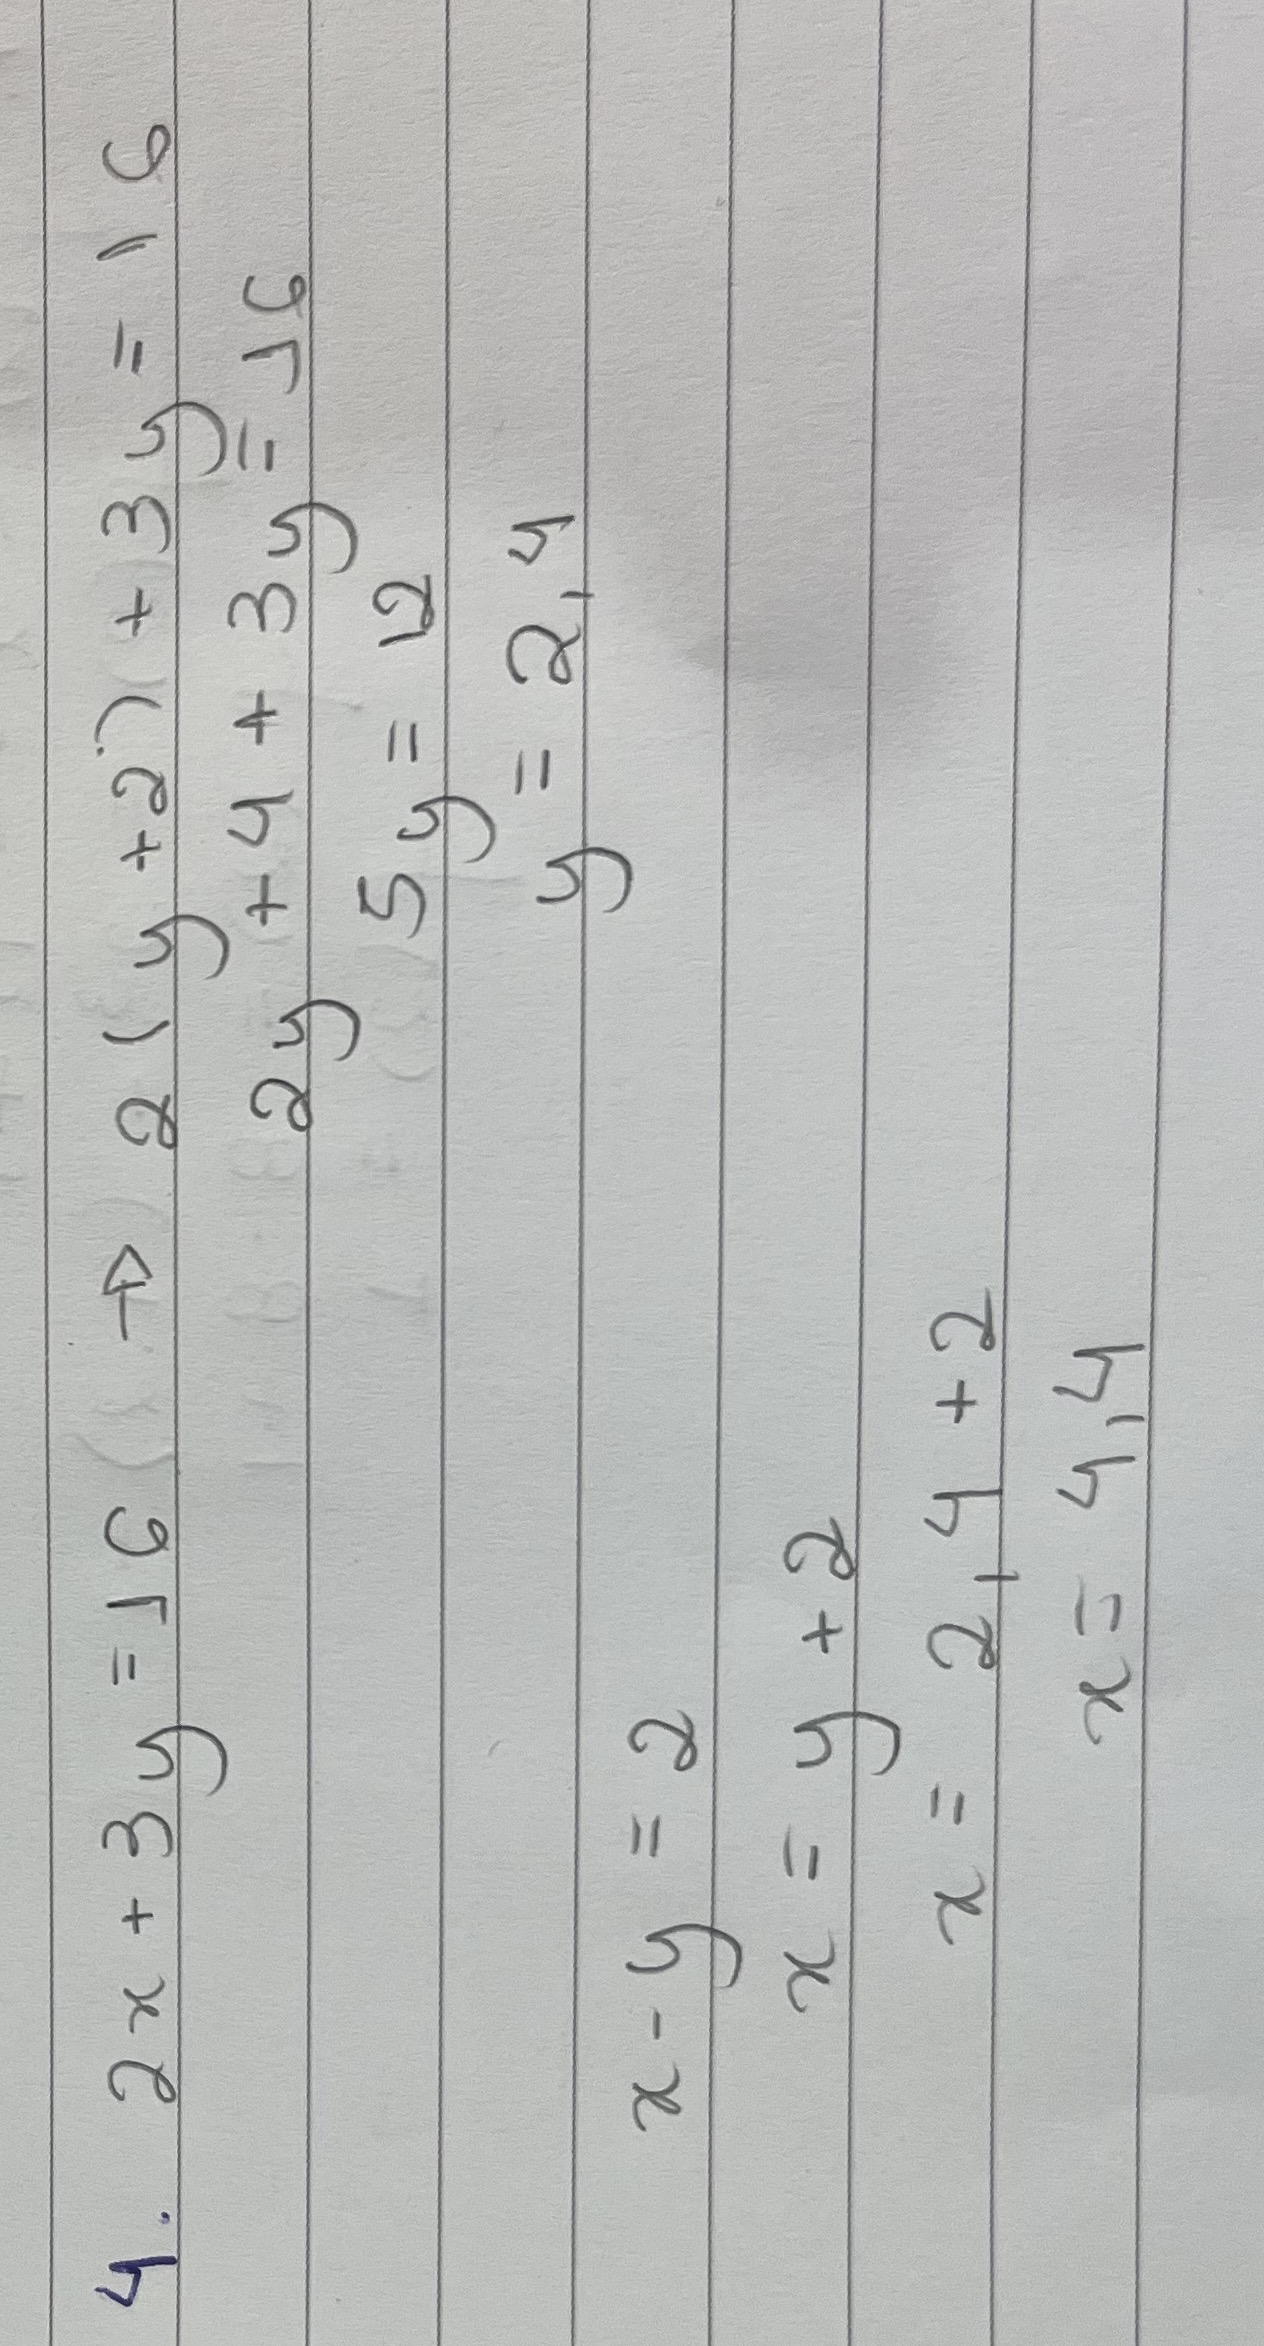 4. 2x + 3y = 16 → 2(y + 2) + 3y = 16
2y + 4 + 3y = 16
5y = 12
y = 2,4
x - y = 2
x = y + 2
x = 2,4 + 2
x = 4,4